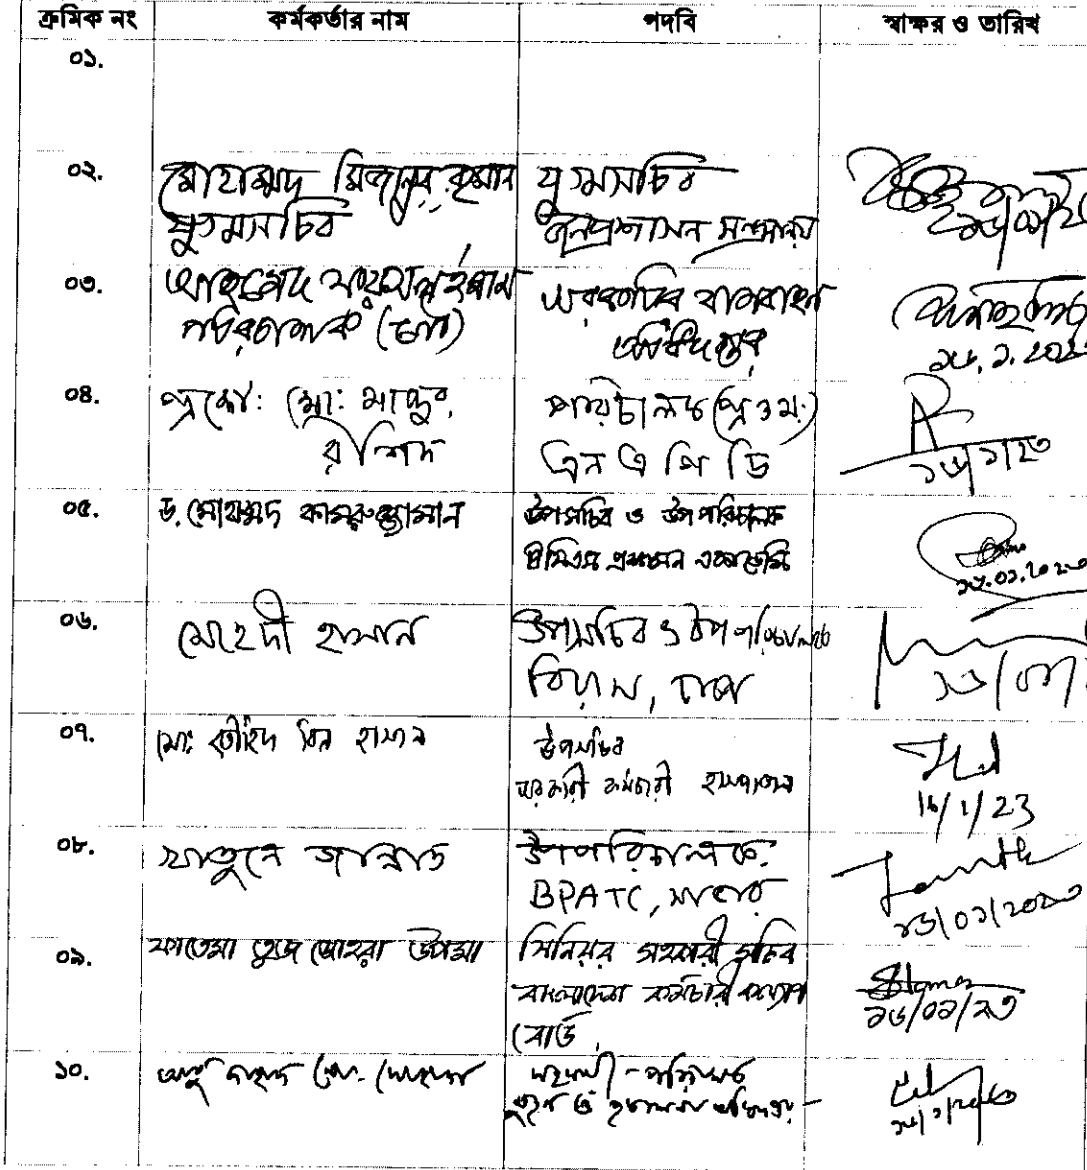 ক্রমিক নং কর্মকর্তার নাম পদবি স্বাক্ষর ও তারিখ
০১.
০২. মোহাম্মদ মিজানুর রহমান যুগ্মসচিব
যুগ্মসচিব জনপ্রশাসন মন্ত্রণালয়
০৩. সরকারি যানবাহন
পরিচালক অধিদপ্তর
১৬.১.২০২৩
০৪. প্রকৌ: মো: মামুনুর পরিচালক (প্র ও ম:)
রশিদ এন এ পি ডি
১৬/১/২৩
০৫. ড. মোহাম্মদ কামরুজ্জামান উপসচিব ও উপপরিচালক
বিসিএস প্রশাসন একাডেমি
১৬.০১.২০২৩
০৬. মেহেদী হাসান উপসচিব ও উপপরিচালক
বিয়াম, ঢাকা
০৭. মো: তৌহিদ বিন হাসান উপসচিব
সরকারী কর্মচারী হাসপাতাল
16/1/23
০৮. খাতুনে জান্নাত উপপরিচালক.
BPATC, সাভার
১৬/০১/২০২৩
০৯. ফাতেমা তুজ জোহরা উপমা সিনিয়র সহকারী সচিব
বাংলাদেশ কর্মচারী কল্যাণ
বোর্ড
১৬/০১/২৩
১০. আবু মো:
ও